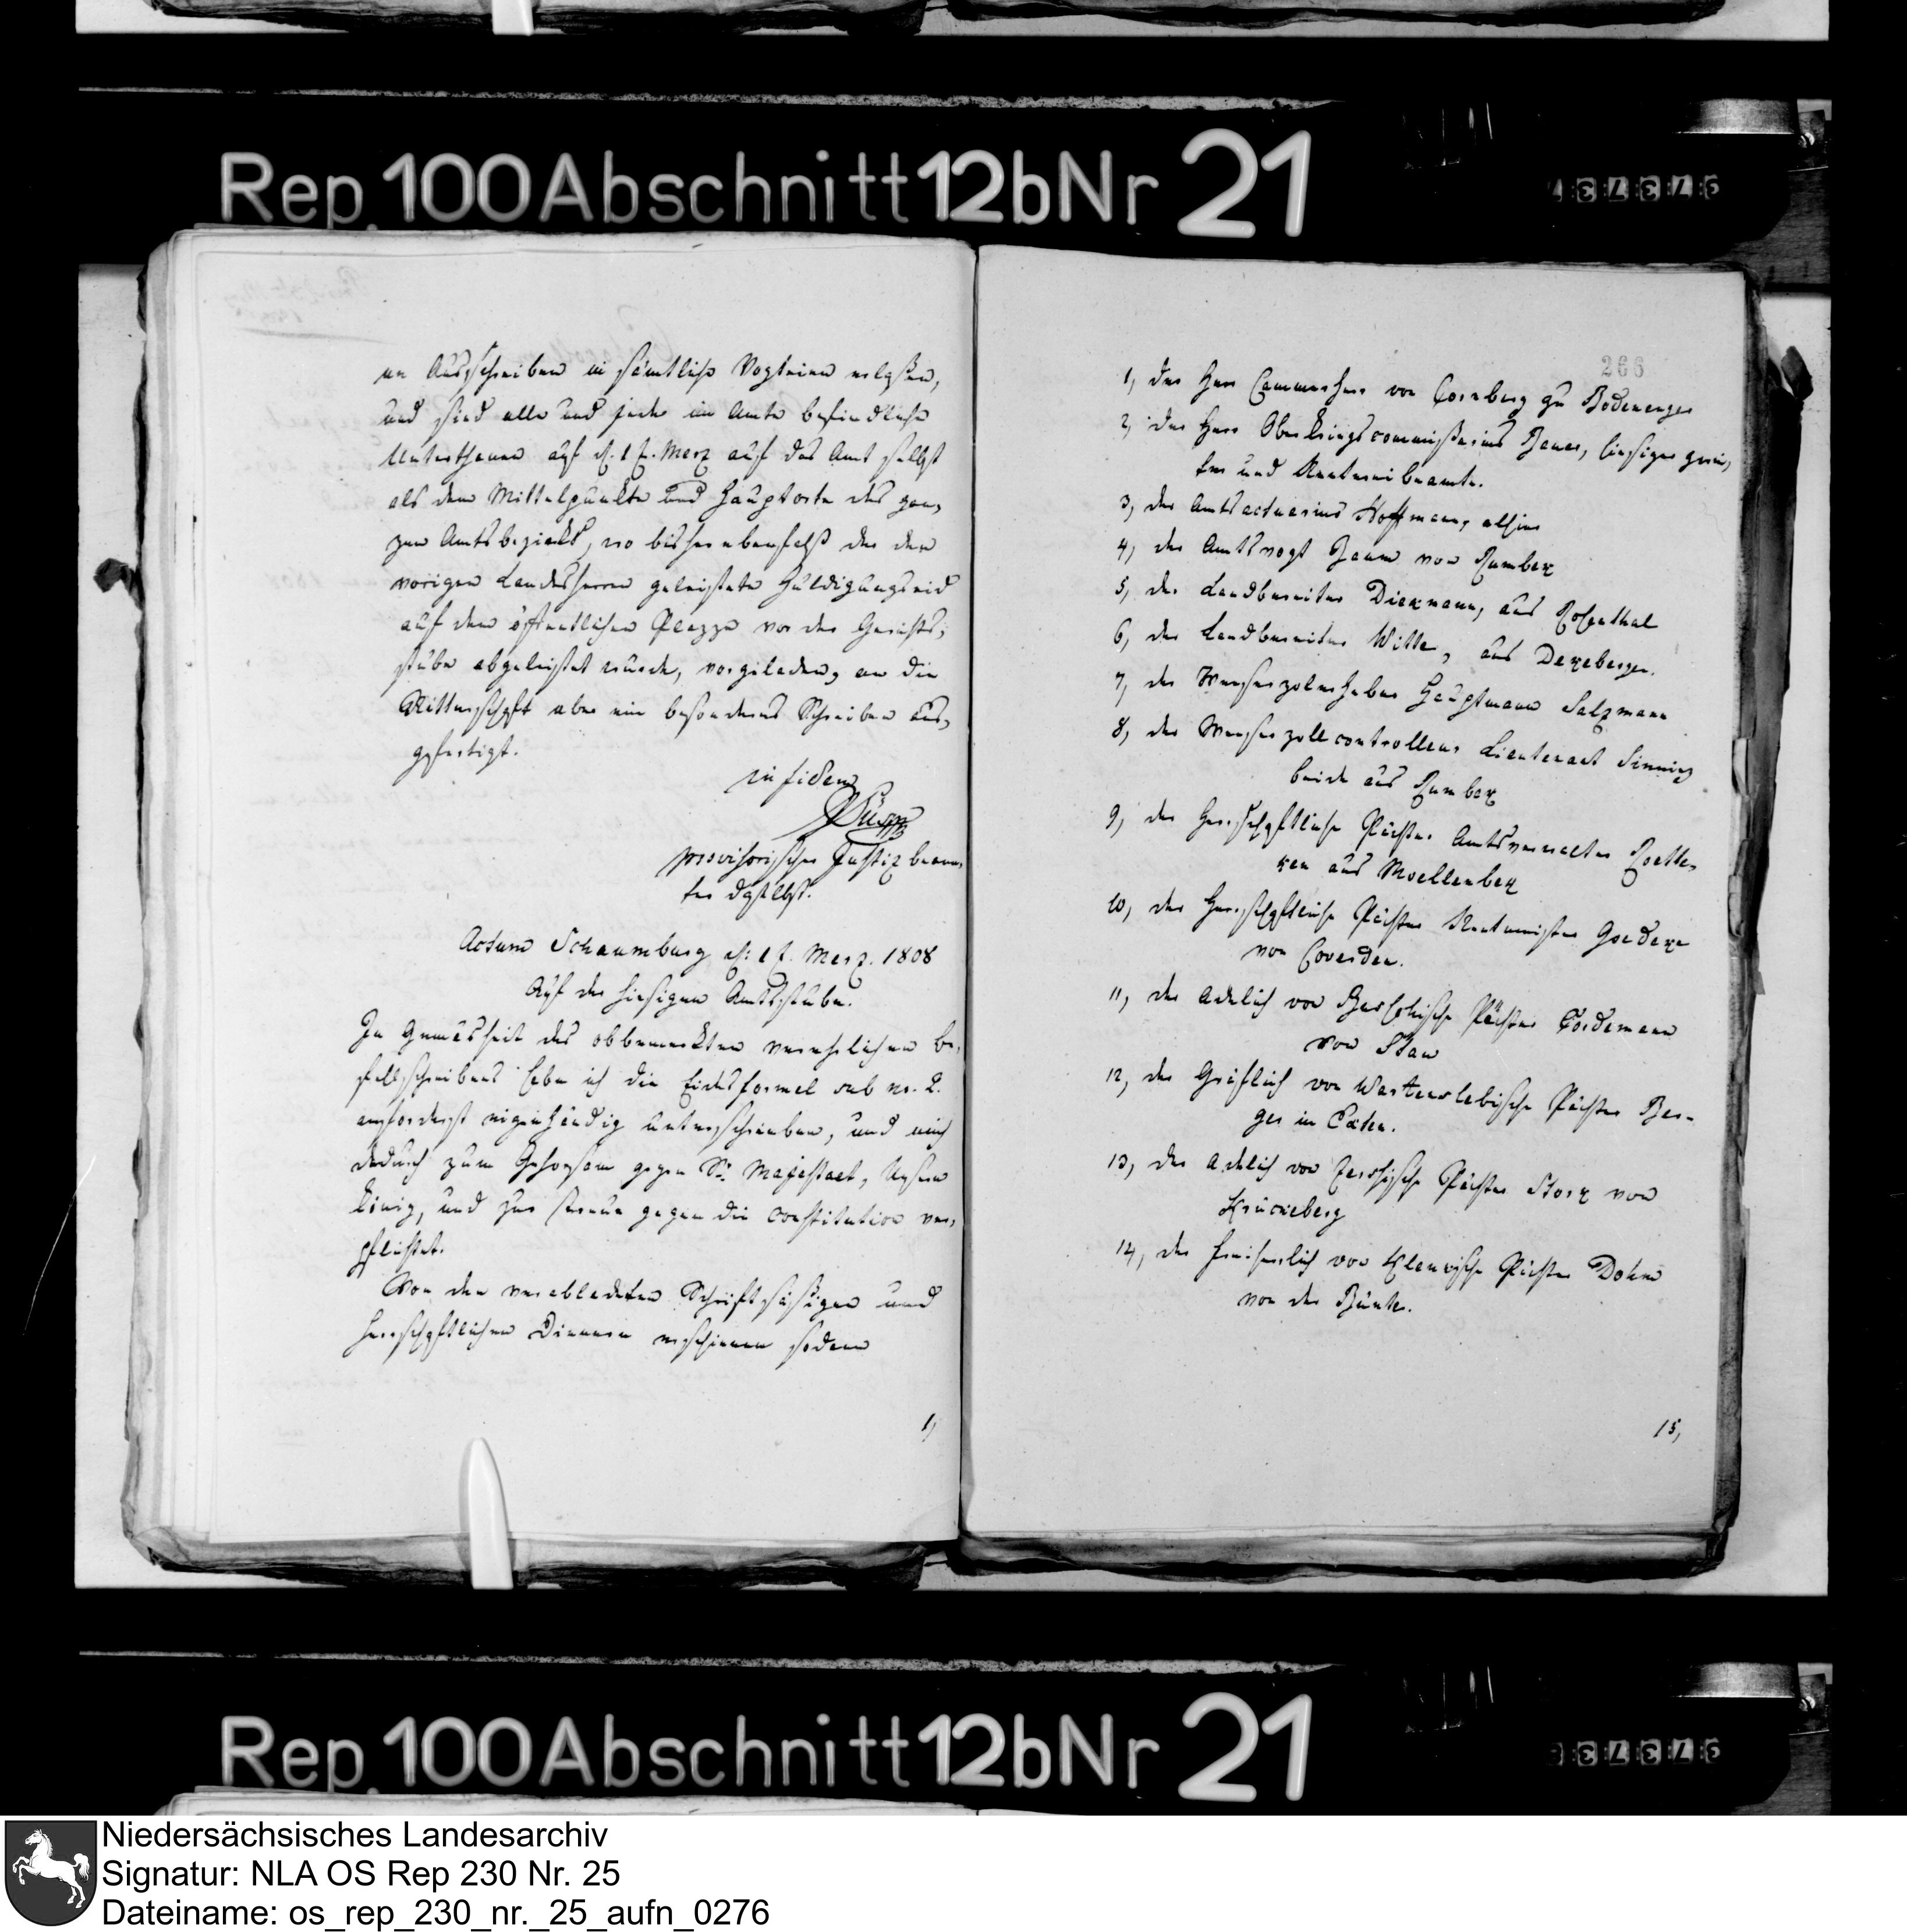 Rep. 100 Abschnitt 12b Nr 21
97373
en Ausschreiben in sämtliche Vogteien erlaßen,
und sind alle und jede im Amte befindliche
Unterthanen auf d. 1 t. Merz auf das Amt selbst
als dem Mittelpunkte und Hauptorte des gan,
zen Amtsbezirks, wo bisher ebenfalß der den
vorigen Landesherren geleistete Huldigungseid
auf dem öffentlichen Plazze vor der Gerichts,
stube abgeleistet wurde, vorgeladen, an die
Ritterschaft aber ein besonderes Schreiben aus,
gefertigt.
in fidem
provisorischer Justiz beam,
ter daselbst.
Actum Schaumburg d: 1 t. Merz. 1808
Auf der hiesigen Amtsstube.
In Gemäsheit des obbemerkten verehrlichen Be,
fehlschreibens habe ich die Eidesformel sub no. 2.
zuforderst eigenhändig unterschrieben, und mich
dadurch zum Gehorsam gegen Sr. Majestaet, Unsern
König, und zur Treue gegen die Constitution ver,
pflichtet.
Von den verabladeten Schriftsäßigen und
Herrschaftlichen Dienern erschienen sodann
1,
266
1, der Herr Cammerherr von Cornberg zu Bodenengern
2, der Herr Oberkriegscommißarius Bauer, hiesiger
ter und Renterei beamte.
3, der Amtsactuarius Hoffmann, alhier
4, der Amtsvogt Baum von Rumbek
5, der Landbereiter Dickmann, aus Rosenthal
6, der Landbereiter Witte, aus Dekebergen.
7, der Weserzolerheber Hauptmann Salzmann
8, der Weserzollcontrolleur Lieutenant Sinning
beide aus Rumbek
9, der Herrschaftliche Pächter Amtsverwalter Roette,
ken aus Moellenbek
10, der Herrschaftliche Pächter Rentmeister Goedeke
von Coverden.
11, der Adelich von Pächter Tördemann
von Stau
12, der Gräflich von Wartenslebische Pächter Ber-
ger in Exten.
13, der Adelich von Zerssische Pächter Stork von
Krückeberg
14, der Freiherrlich von Klenkische Pächter Dohm
von der Bünte.
15,
Rep. 100 Abschnitt 12b Nr 21
97373
Niedersächsisches Landesarchiv
Signatur: NLA OS Rep 230 Nr. 25
Dateiname: os_rep_230_nr._25_aufn_0276